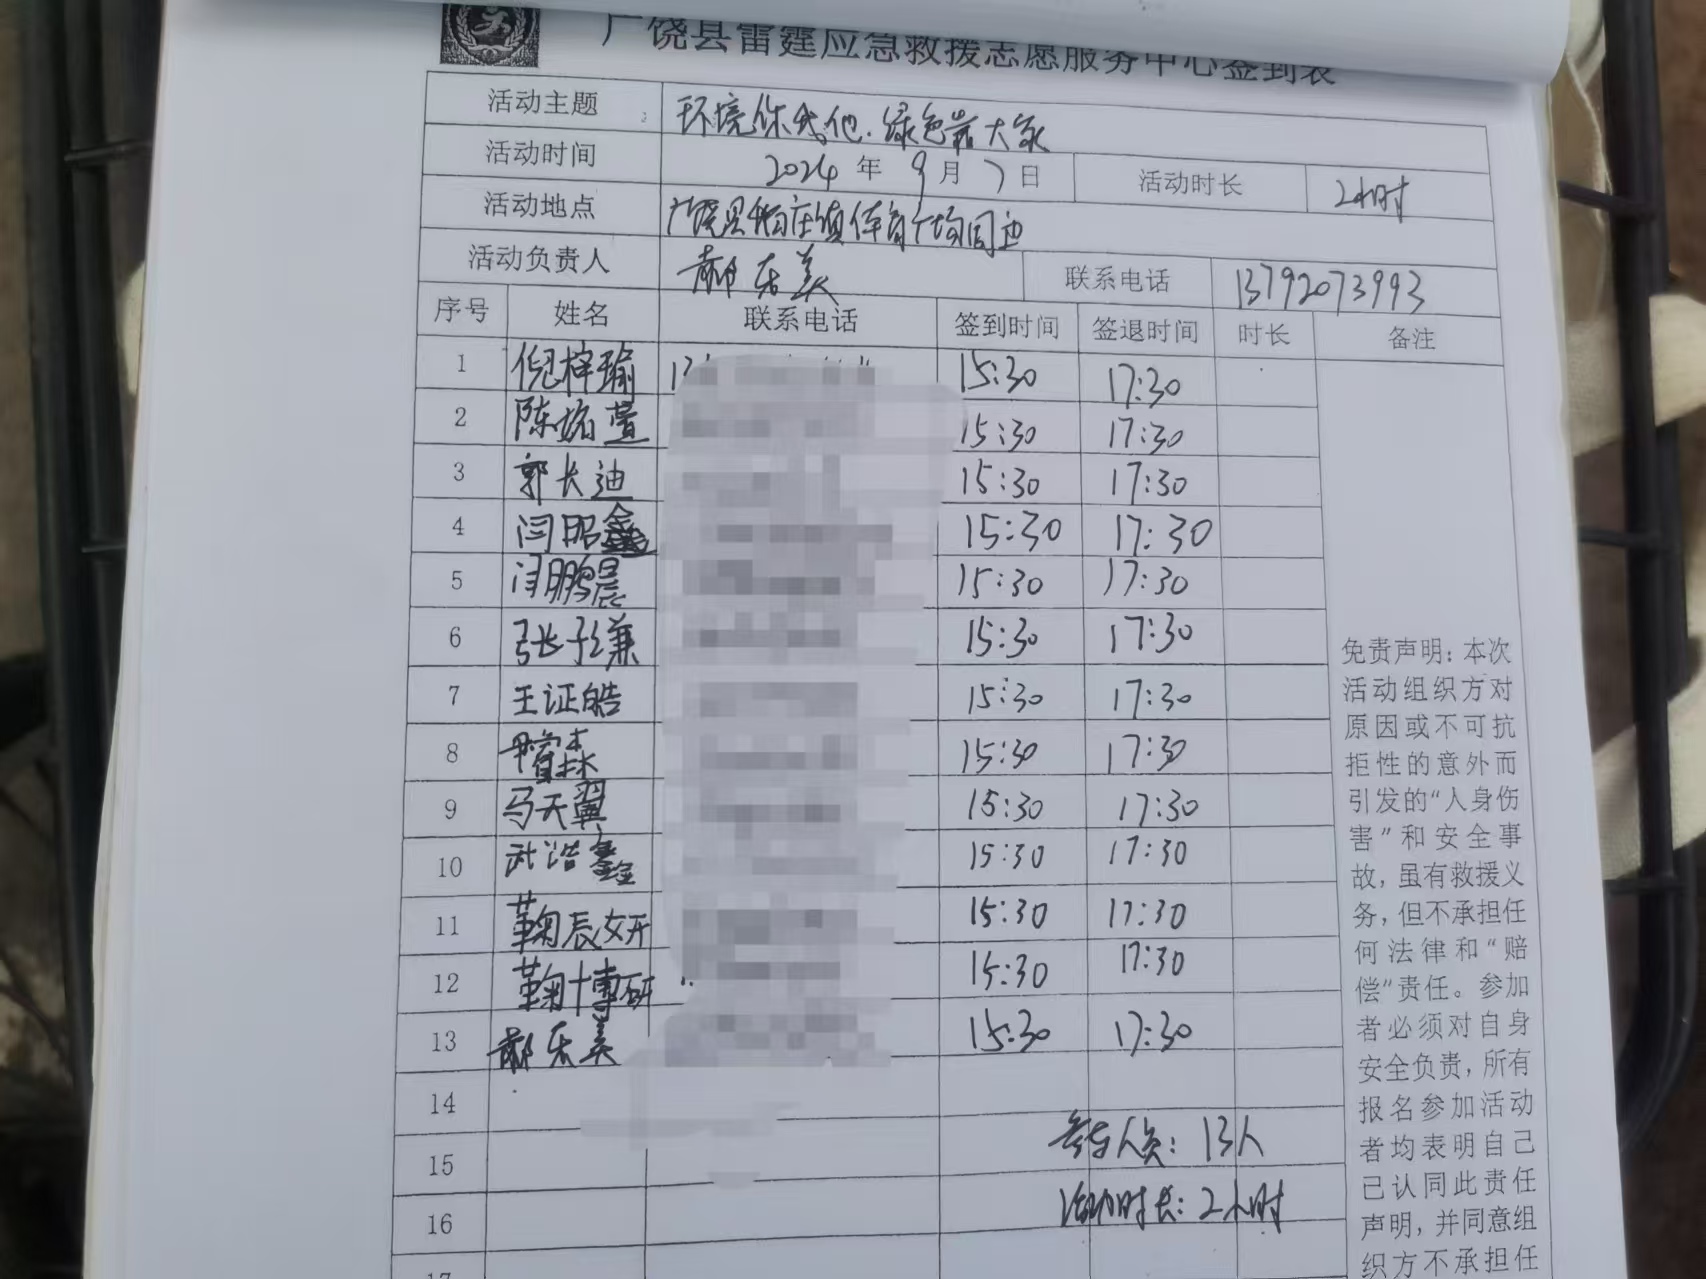 广饶县雷霆应急救援志愿服务中心签到表
活动主题 环境你我他.绿色靠大家
活动时间 2024年9月7日 活动时长 2小时
活动地点 广饶县稻庄镇体育广场周边
活动负责人 郝乐美 联系电话 13792073993
序号 姓名 联系电话 签到时间 签退时间 时长 备注
1 倪梓瑜 15:30 17:30
2 陈婼萱 15:30 17:30
3 郭长迪 15:30 17:30
4 闫昭鑫 15:30 17:30
5 闫鹏晨 15:30 17:30
6 张衫谦 15:30 17:30
7 王证皓 15:30 17:30
8 15:30 17:30
9 马天翼 15:30 17:30
10 武浩鑫 15:30 17:30
11 鞠辰妍 15:30 17:30
12 鞠博研 15:30 17:30
13 郝乐美 15:30 17:30
14
15
16
17
参与人员：13人
活动时长：2小时
免责声明：本次
活动组织方对
原因或不可抗
拒性的意外而
引发的“人身伤
害”和安全事
故，虽有救援义
务，但不承担任
何法律和“赔
偿”责任。参加
者必须对自身
安全负责，所有
报名参加活动
者均表明自己
已认同此责任
声明，并同意组
织方不承担任